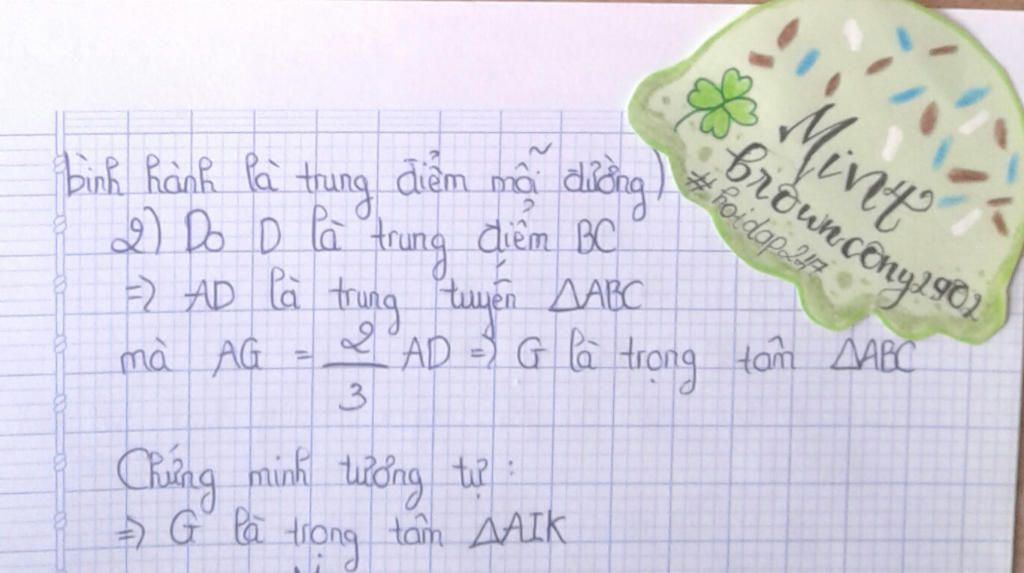 bình hành là trung điểm mỗi đường)
2) Do D là trung điểm BC
=> AD là trung tuyến ΔABC
mà AG = 2/3 AD => G là trọng tâm ΔABC
Chứng minh tương tự :
=> G là trọng tâm ΔAIK
Miny
browncony2902
#hoidap247